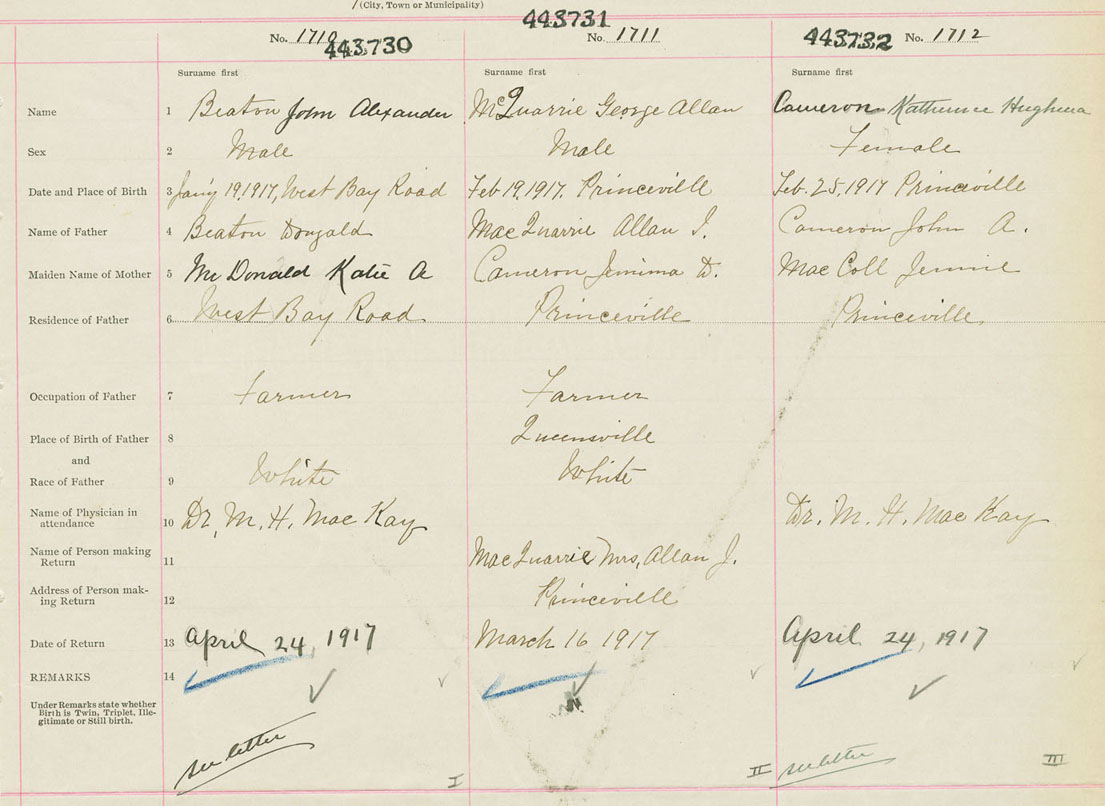 (City, Town or Municipality)
No. 1710 443730 443731 No. 1711 443732 No. 1712
Surname first Surname first Surname first
Name 1 Beaton John Alexander McQuarrie George Allan Cameron Katherine Hughena
Sex 2 Male Male Female
Date and Place of Birth 3 Jan'y 19, 1917, West Bay Road Feb. 19, 1917. Princeville Feb. 25, 1917 Princeville
Name of Father 4 Beaton Dougald MacQuarrie Allan J. Cameron John A.
Maiden Name of Mother 5 McDonald Katie A Cameron Jemima D. MacColl Jennie
Residence of Father 6 West Bay Road Princeville Princeville
Occupation of Father 7 Farmer Farmer
Place of Birth of Father 8 Queensville
and
Race of Father 9 White White
Name of Physician in
attendance 10 Dr. M. H. MacKay Dr. M. H. MacKay
Name of Person making
Return 11 MacQuarrie Mrs, Allan J.
Address of Person mak-
ing Return 12 Princeville
Date of Return 13 April 24, 1917 March 16 1917 April 24, 1917
REMARKS 14
Under Remarks state whether
Birth is Twin, Triplet, Ille-
gitimate or Still birth.
see letter see letter
I II III